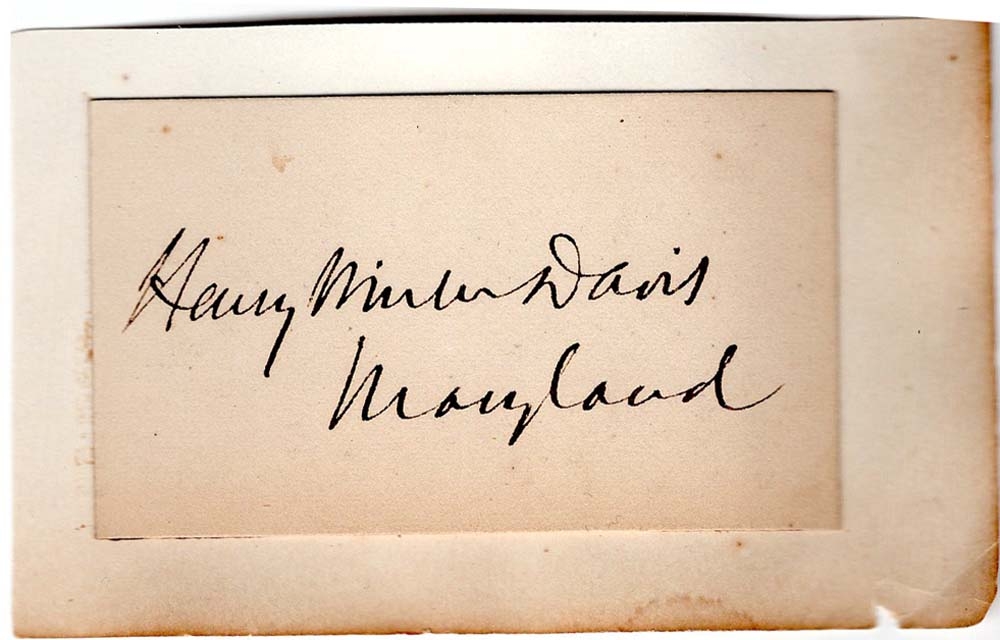 Henry Winter Davis
Maryland